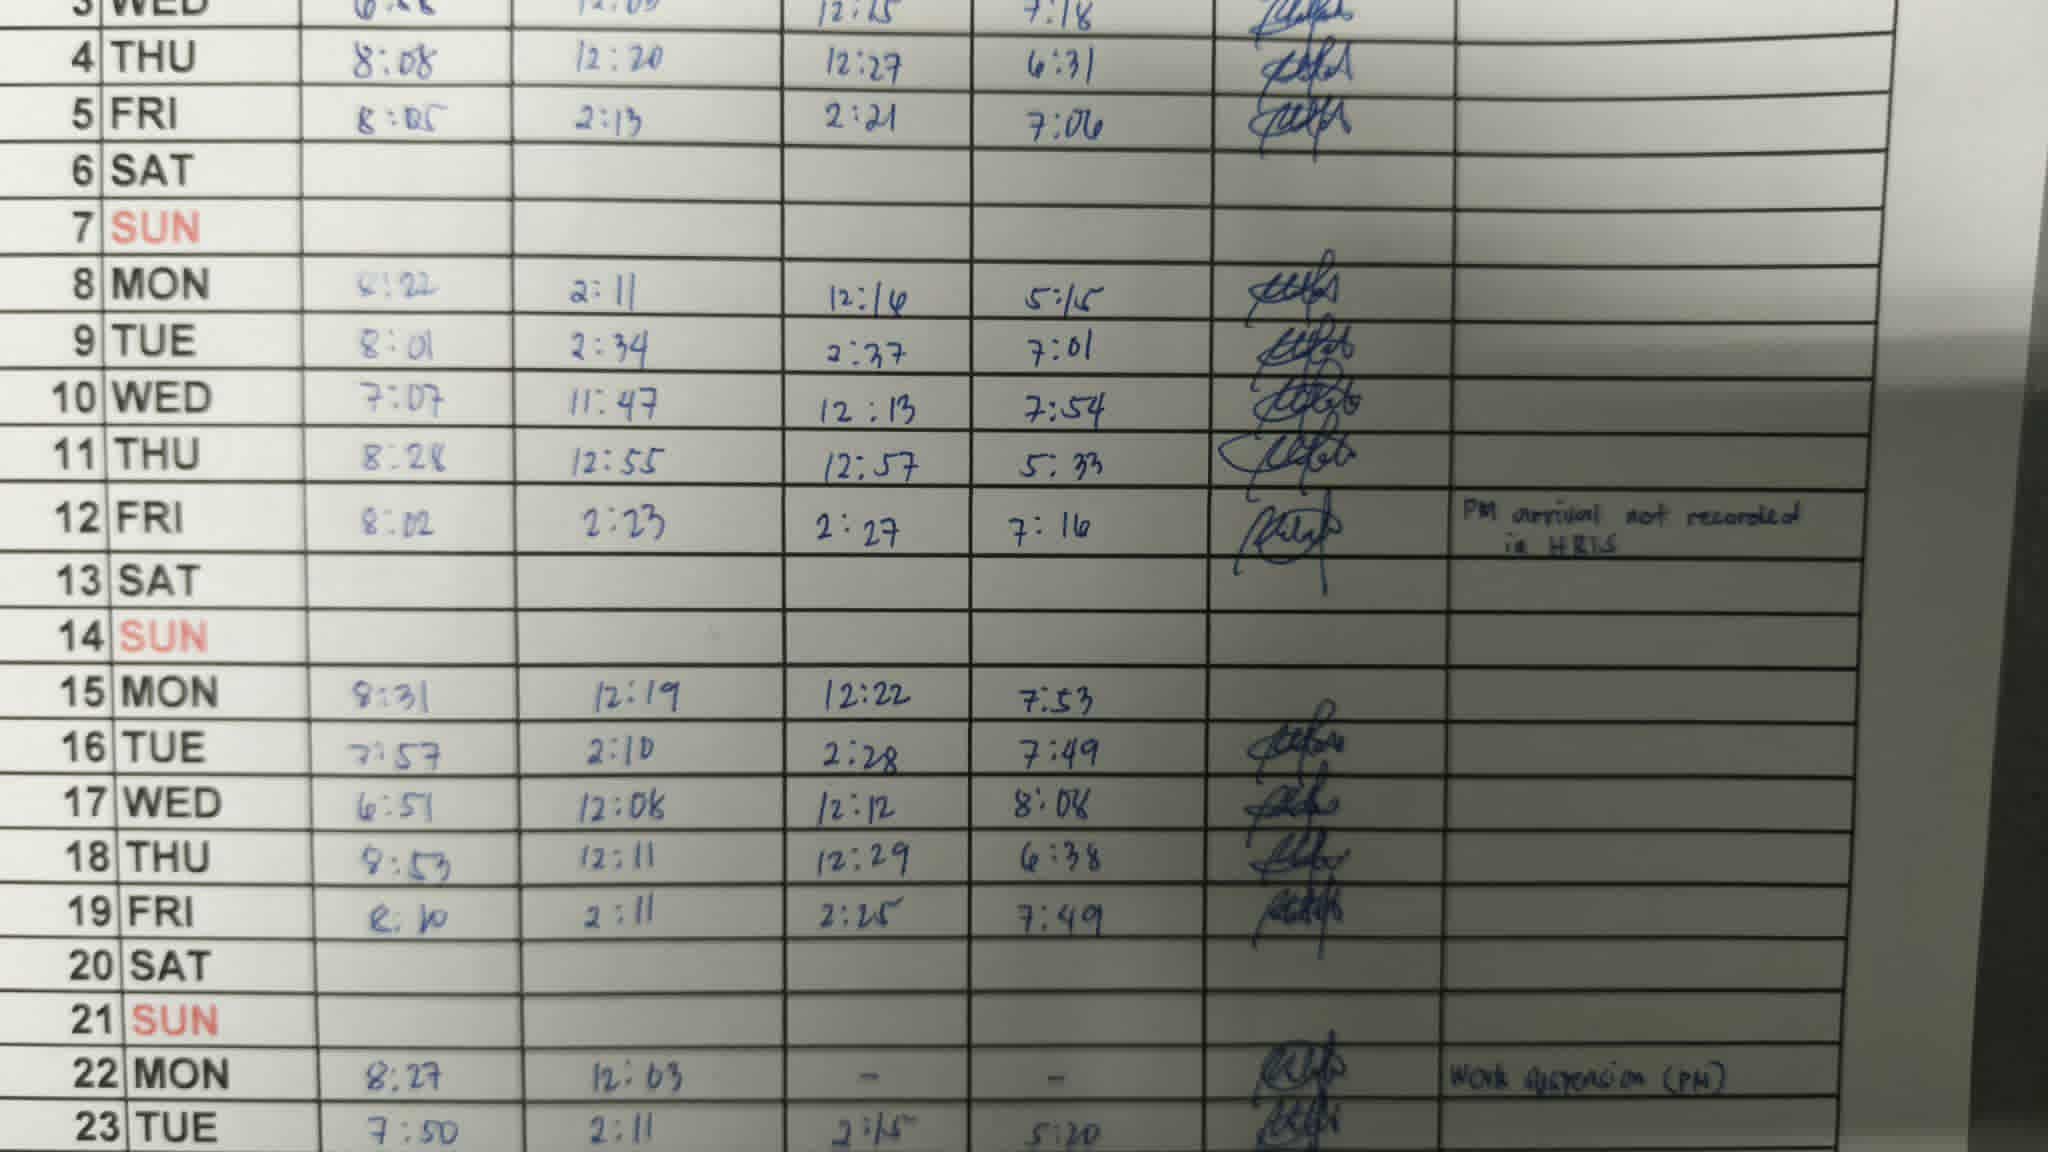 3 WED 12:03 12:15 7:18
4 THU 8:08 12:20 12:27 6:31
5 FRI 8:05 2:13 2:21 7:06
6 SAT
7 SUN
8 MON 8:22 2:11 12:16 5:15
9 TUE 8:01 2:34 2:37 7:01
10 WED 7:07 11:47 12:13 7:54
11 THU 8:28 12:55 12:57 5:33
12 FRI 8:02 2:23 2:27 7:16 PM arrival not recorded
in HRIS
13 SAT
14 SUN
15 MON 8:31 12:19 12:22 7:53
16 TUE 7:57 2:10 2:28 7:49
17 WED 6:51 12:08 12:12 8:08
18 THU 8:53 12:11 12:29 6:38
19 FRI 8:10 2:11 2:25 7:49
20 SAT
21 SUN
22 MON 8:27 12:03 - - Work suspension (PM)
23 TUE 7:50 2:11 2:15 5:20